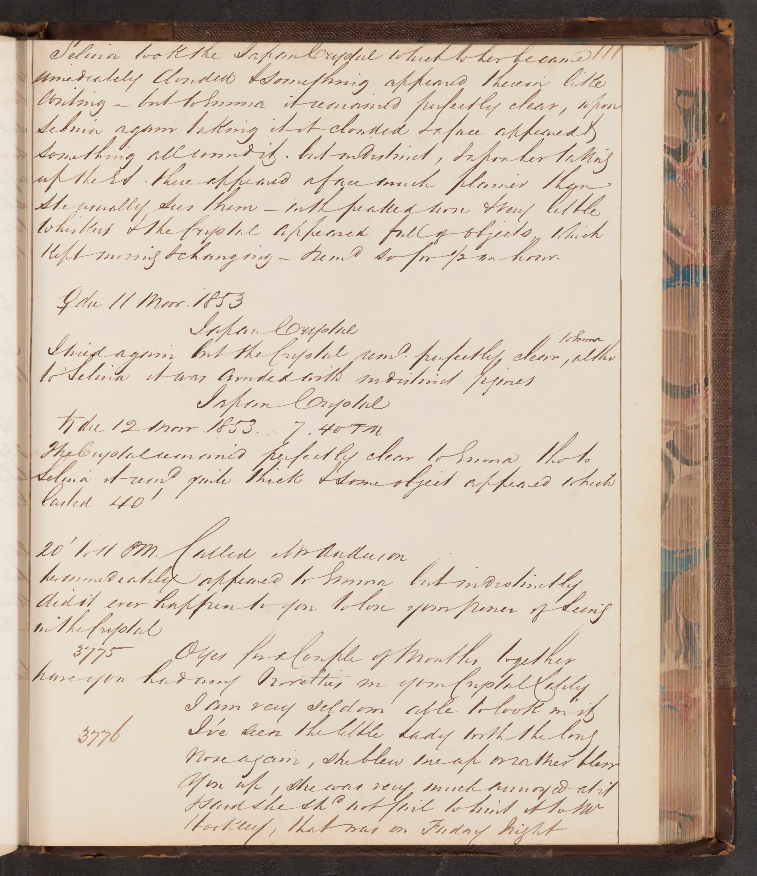 111
Selina took the Japan Crystal which to her became
imediately clouded & something appeared therein like
writing – but to Emma it remained perfectly clear, upon
Selina again taking it it clouded & a face appeared &
something all round it. but indistinct, & upon her taking
up the . there appeared a face much plainer than
she usually sees them – with peaked nose & very little
Whiskers & the Crystal appeared full of objects, which
kept moving & changing – remd so for ½ an hour.
♀ die 11 Mar. 1853
Japan Crystal
to Emma
I tried again but the Crystal remd. perfectly clear, altho
to Selina it was clouded with indistinct figures
Japan Crystal
♄ die 12 Mar 1853. 7.40 PM
The Crystal remained perfectly clear to Emma tho to
Selina it remd quite thick & some object appeared which
lasted 40'
20' to 11 PM. Called Mr Anderson
he immediately appeared to Emma but indistinctly
did it ever happen to you to lose your power of Seeing
in the Crystal
3775 O yes for a Couple of Months together
have you had any Novelties in your Crystal lately
I am very seldom able to look in it
3776 I've seen the little Lady with the long
Nose again, she blew me up or rather blew
you up, she was very much annoyed at it
& said she shd not fail to hint it to Mr
Hockley, that was on Friday Night